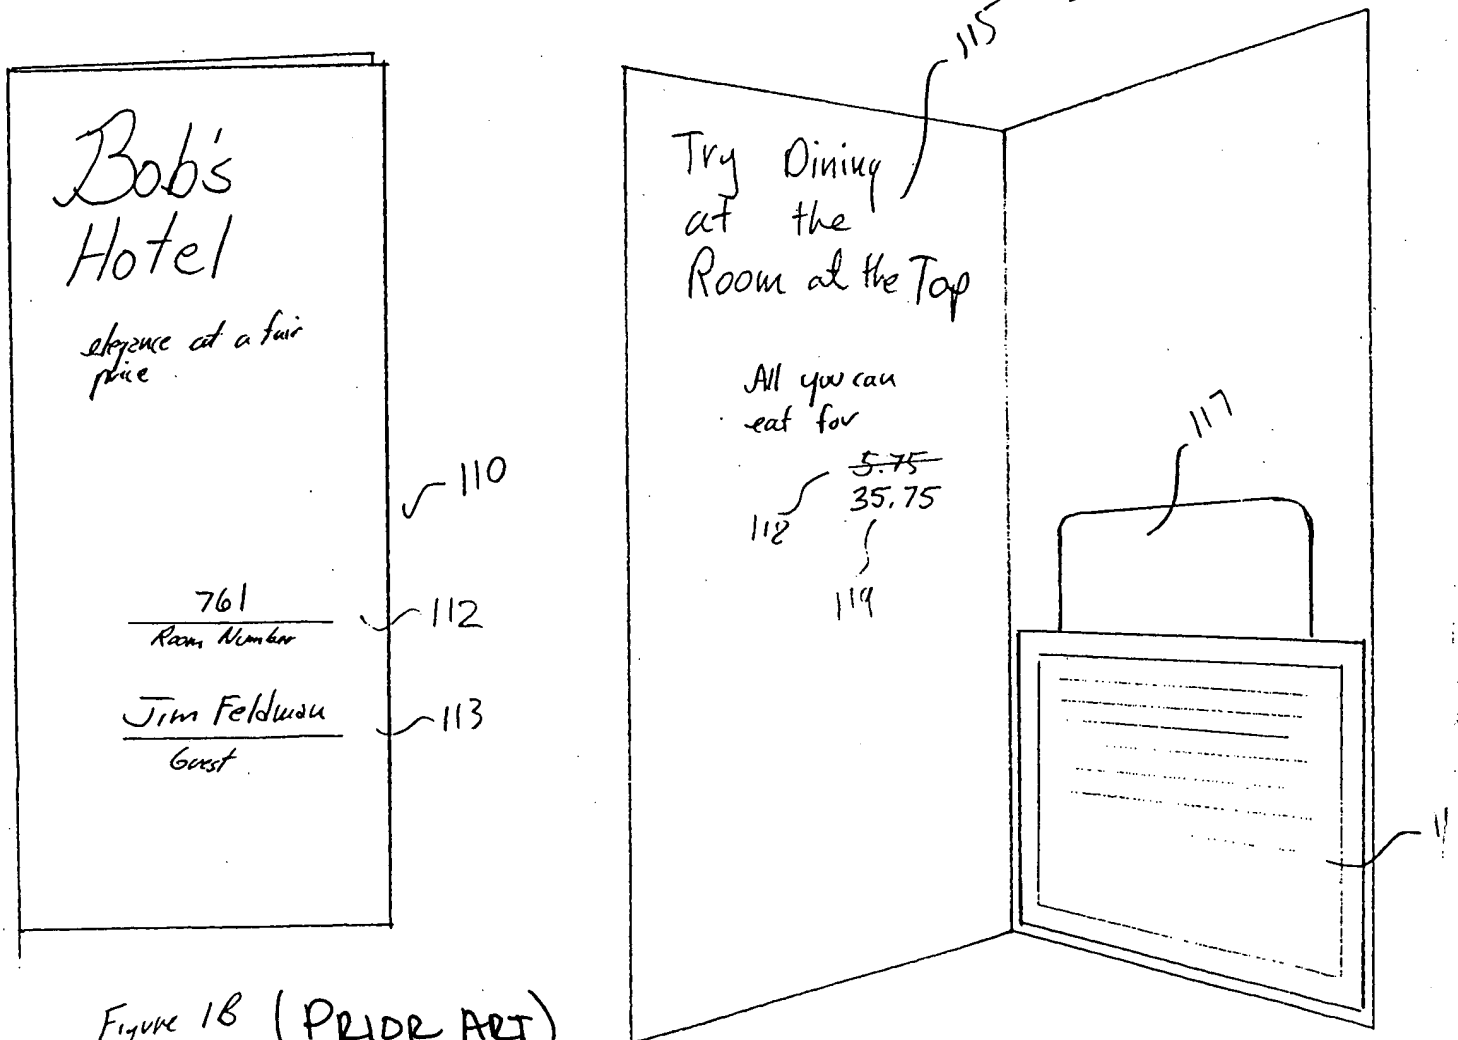 Bob's
Hotel
elegance at a fair
price
110
761
Room Number
112
Jim Feldman
Guest
113
Figure 1B (PRIOR ART)
115
Try Dining
at the
Room at the Top
All you can
eat for
5.75
35.75
118
119
117